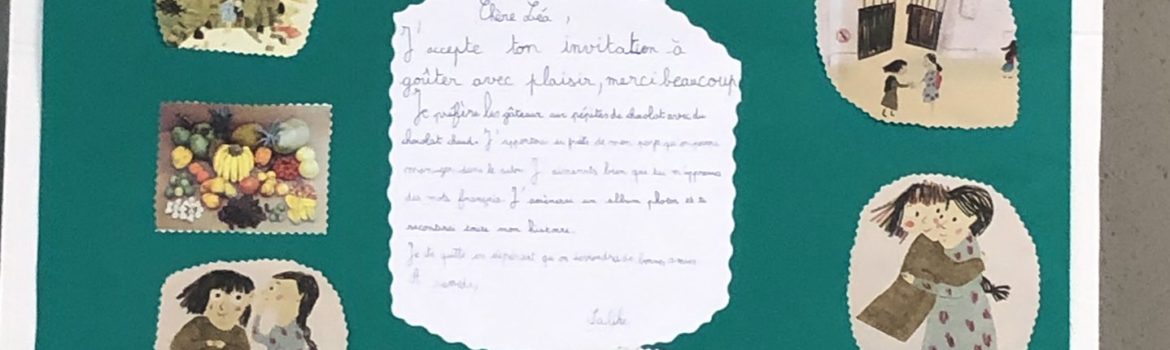 Chère Léa,
J'accepte ton invitation à
goûter avec plaisir, merci beaucoup
Je préfère les gâteaux aux pépites de chocolat avec du
chocolat chaud. J'apporterai des fruits de mon pays qu'on pourra
manger dans le salon J'aimerais bien que tu m'apprennes
des mots français. J'amènerai un album photos et te
raconterai toute mon histoire.
Je te quitte en espérant qu'on deviendra de bonnes amies
A samedi,